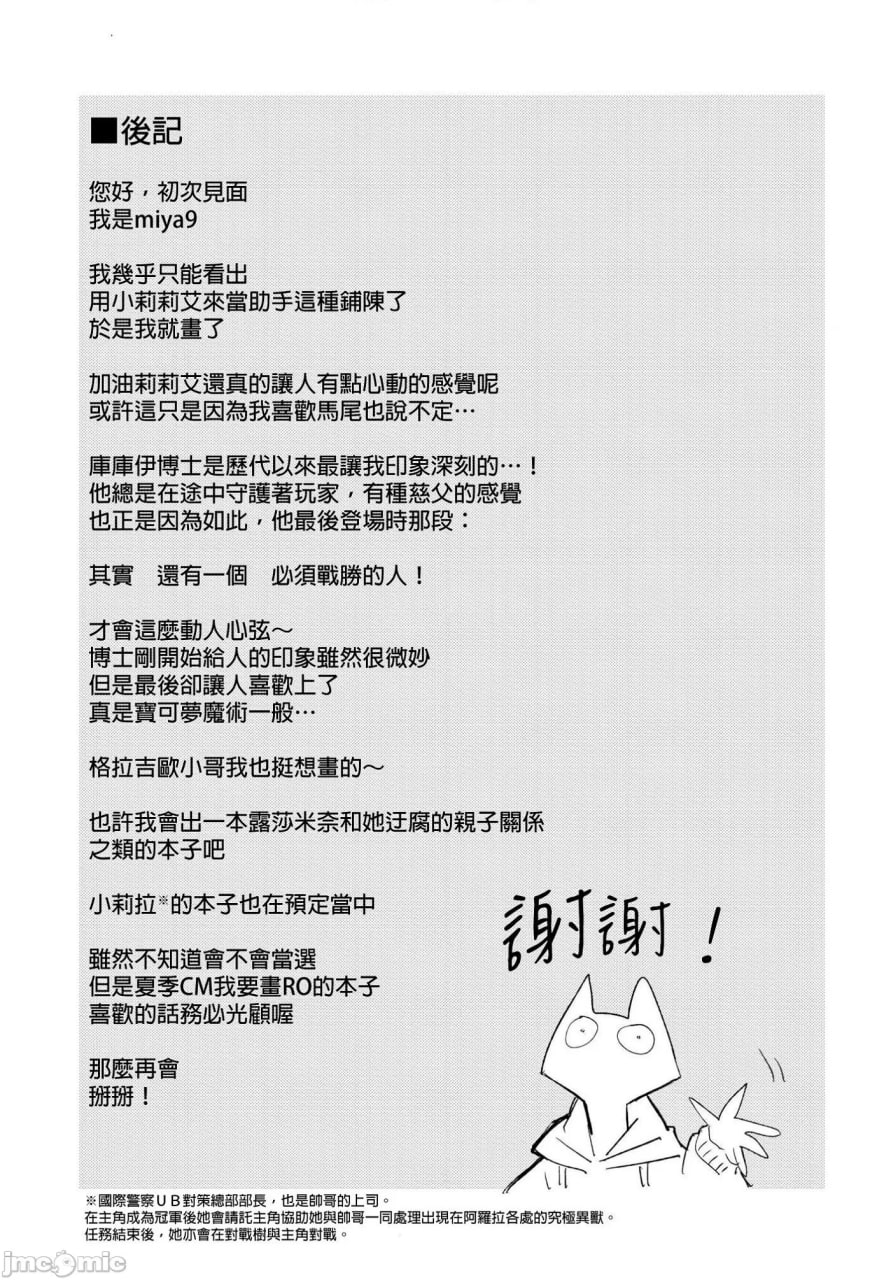 ■後記
您好，初次見面
我是miya9
我幾乎只能看出
用小莉莉艾來當助手這種鋪陳了
於是我就畫了
加油莉莉艾還真的讓人有點心動的感覺呢
或許這只是因為我喜歡馬尾也說不定…
庫庫伊博士是歷代以來最讓我印象深刻的…！
他總是在途中守護著玩家，有種慈父的感覺
也正是因為如此，他最後登場時那段：
其實　還有一個　必須戰勝的人！
才會這麼動人心弦～
博士剛開始給人的印象雖然很微妙
但是最後卻讓人喜歡上了
真是寶可夢魔術一般…
格拉吉歐小哥我也挺想畫的～
也許我會出一本露莎米奈和她迂腐的親子關係
之類的本子吧
小莉拉※的本子也在預定當中
雖然不知道會不會當選
但是夏季CM我要畫RO的本子
喜歡的話務必光顧喔
那麼再會
掰掰！
謝謝！
※國際警察ＵＢ對策總部部長，也是帥哥的上司。
在主角成為冠軍後她會請託主角協助她與帥哥一同處理出現在阿羅拉各處的究極異獸。
任務結束後，她亦會在對戰樹與主角對戰。
jmcomic